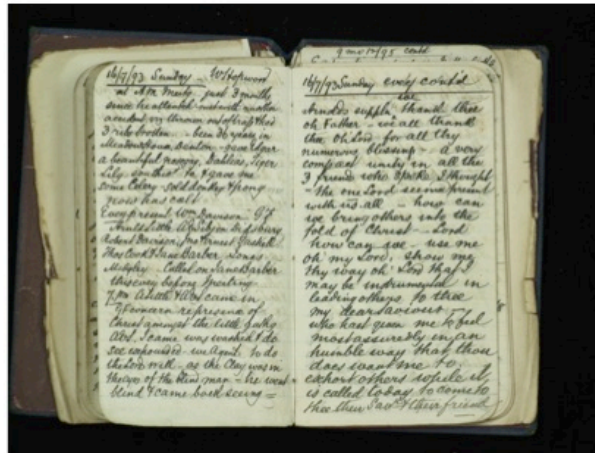 16/7/93 Sunday - W Hopwood
at Afn Meetg just 3 months
since he attended - met with an other
accident by thrown out of trap & had
3 ribs broken - been 36 years in
Meadow House, Denton - gave
a beautiful Dahlias, Tiger
Lily & gave me
some Celery -
Eveg present Wm Davison
A Didsbury
Robert Davison, Ernest Gaskell
Thos Cook & Jane Barber Jonas
Midgley - Called on Jane Barber
this eveg before meeting
7 pm A Little & Ads came in
of
Christ amongst the little
I came was washed & do
see expounded we to do
the Lord's will - as the Clay was in
the eyes of the blind man - he went
blind & came back seeing =
9 mo 10/93 contd
16/7/93 Sunday eveg contd
Arnold's suppln thank thee
oh Father - we all thank
thee oh Lord for all thy
numerous blessings - a very
compact unity in all the
3 friends who spoke I thought
- the one Lord seemed present
with us all - how can
we bring others into the
fold of Christ - Lord
how can we - use me
oh my Lord, show me
thy way oh Lord that I
may be instrumental in
leading others to thee
my dear saviour
who hast given me to feel
most assuredly in an
humble way that thou
does want me to
exhort others while it
is called today to come to
thee their Savr & their friend